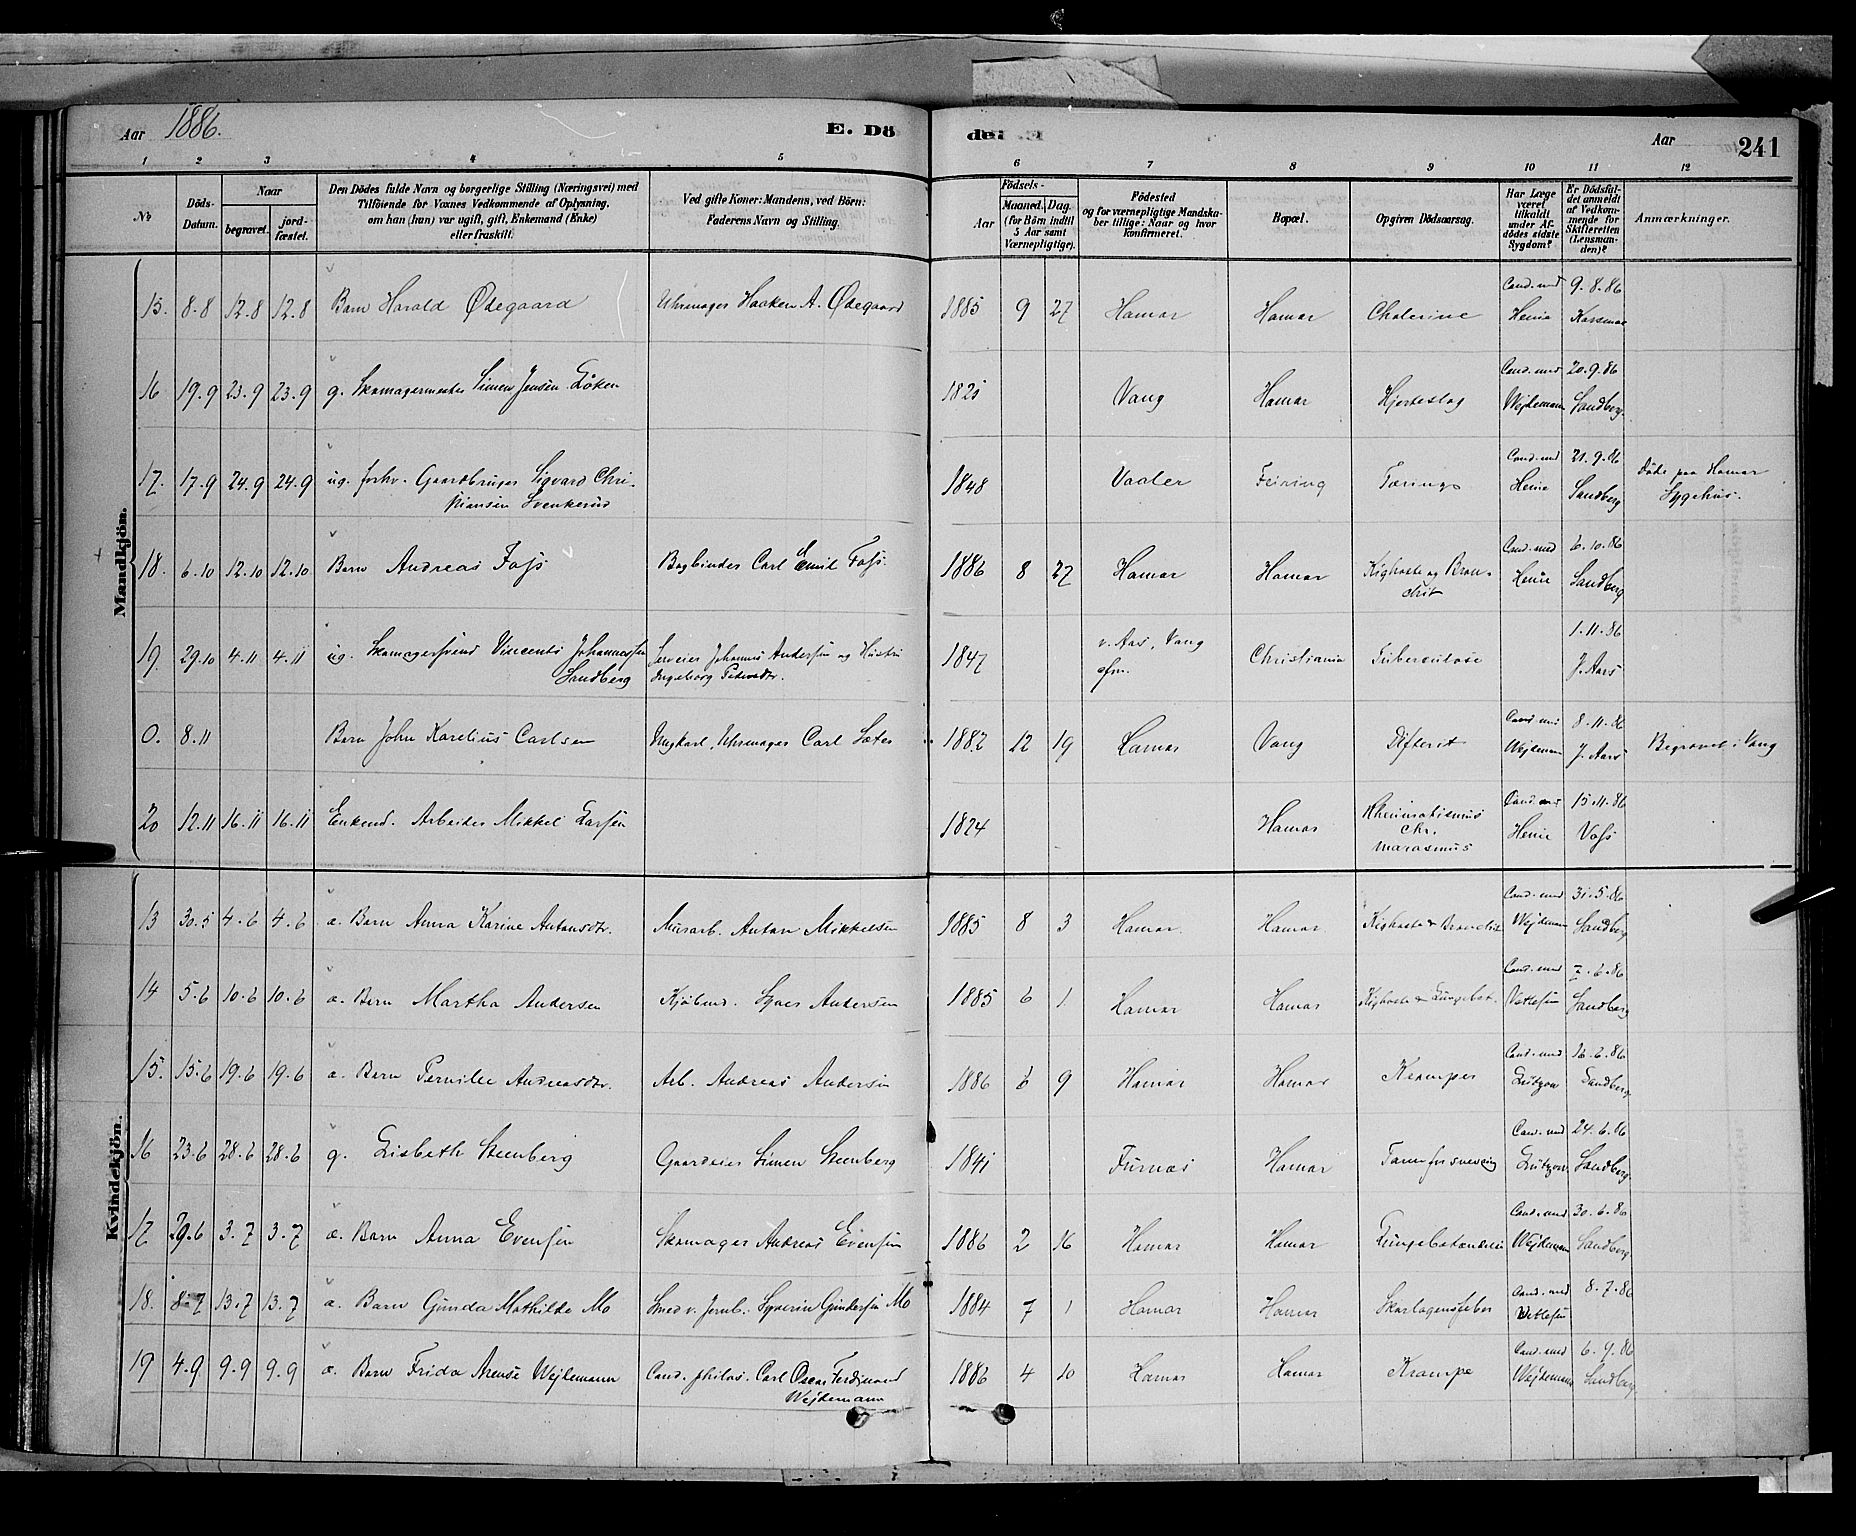 Aar 1886.
E. Dö
de
Aar
241
1 2 3 4 5 6 7 8 9 10 11 12
No
Döds-Datum.
Naar
begravet.
jordfæstet.
Den Dödes fulde Navn og borgerlige Stilling (Næringsvei) med
Tilföiende for Voxnes Vedkommende af Oplysning,
om han (hun) var ugift, gift, Enkemand (Enke)
eller fraskilt.
Ved gifte Koner: Mandens, ved Börn:
Faderens Navn og Stilling.
Födsels-
Aar
Maaned. Dag.
(for Börn indtil
5 Aar samt
Værnepligtige).
Födested
og for værnepligtige Mandskaber tillige: Naar og hvor
konfirmeret.
Bopæl.
Opgiven Dödsaarsag.
Har Læge
været
tilkaldt
under Afdödes sidste
Sygdom?
Er Dödsfaldet anmeldt
af Vedkommende for
Skifteretten
(Lensmanden)?
Anmærkninger.
Mandkjön.
15. 8.8 12.8 12.8 Barn Harald Ødegaard Uhrmager Haaken A. Ødegaard 1885 9 27 Hamar Hamar Cholerine Cand. med Henie 9.8.86
16 19.9 23.9 23.9 g. Skomagermester Simen Jensen Løken Vang Hamar Hjerteslag Cand. med Wejdemann 20.9.86 Sandberg
17. 17.9 24.9 24.9 ug. forhv. Gaardbruger Sigvard Christiansen Svenkerud 1848 Vaaler Feiring Tæring Cand. med Henie 21.9.86 Sandberg Døde paa Hamar Sygehus.
18. 6.10 12.10 12.10 Barn Andreas Foss Bogbinder Carl Emil Foss. 1886 8 27 Hamar Hamar Kighoste og Bronchit Cand. med Henie 6.10.86 Sandberg
19. 29.10 4.11 4.11 ug. Skomagersvend Vincents Johannessen Sandberg Johannes Andersen og Hustru Ingeborg Pedersdtr. 1847 v. Aas, Vang Christiania Tuberculose 1.11.86 J. Aars
0. 8.11 Barn John Karelius Carlsen Ungkarl, Uhrmager Carl Sæter 1882 12 19 Hamar Vang Difterit Cand. med Wejdemann 8.11.86 J. Aars Begravet i Vang
20 12.11 16.11 16.11 Enkemd. Arbeider Mikkel Larsen 1824 Hamar Rheumatismus chr. marasmus Cand. med Henie 15.11.86 Voss
Kvindekjön.
13 30.5 4.6 4.6 æ. Barn Anna Karine Antonsdtr. Murarb. Anton Mikkelsen 1885 8 3 Hamar. Hamar Kighoste & Bronchit Cand. med Wejdemann 31.5.86 Sandberg
14 5.6 10.6 10.6 æ. Barn Martha Andersen Kjøbmd. Syver Andersen 1885 6 1 Hamar Hamar Kighoste & Lungebet. Cand. med Vetlesen 7.6.86 Sandberg
15. 15.6 19.6 19.6 æ. Barn Pernille Andreasdtr. Arb. Andreas Andersen 1886 6 9 Hamar Hamar Kramper Cand. med Lützow 16.6.86 Sandberg
16 23.6 28.6 28.6 g. Lisbeth Steenberg Gaardeier Simen Steenberg 1841 Furnæs Hamar Cand. med Lützow 24.6.86 Sandberg
17 29.6 3.7 3.7 æ. Barn Anna Evensen Skomager Andreas Evensen 1886 2 16 Hamar Hamar Lungebetændelse Cand. med Wejdemann 30.6.86 Sandberg
18. 8.7 13.7 13.7 æ. Barn Gunda Mathilde Mo Smed v. Jernb. Syverin Gundersen Mo 1884 7 1 Hamar Hamar Skarlagensfeber Cand. med Vetlesen 8.7.86
19 4.9 9.9 9.9 æ. Barn Frida Wejdemann Cand. philos. Carl Oscar Ferdinand Wejdemann 1886 4 20 Hamar Hamar Krampe Cand. med Wejdemann 6.9.86 Sandberg